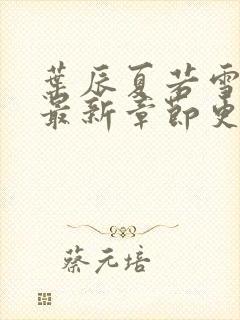 葉辰夏若雪
最新章節更
蔡元培